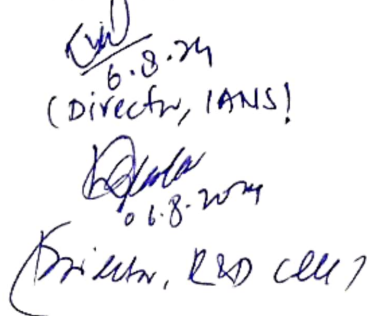 6.8.24
(Director, IANS)
06.8.2024
(Director, R&D Cell)